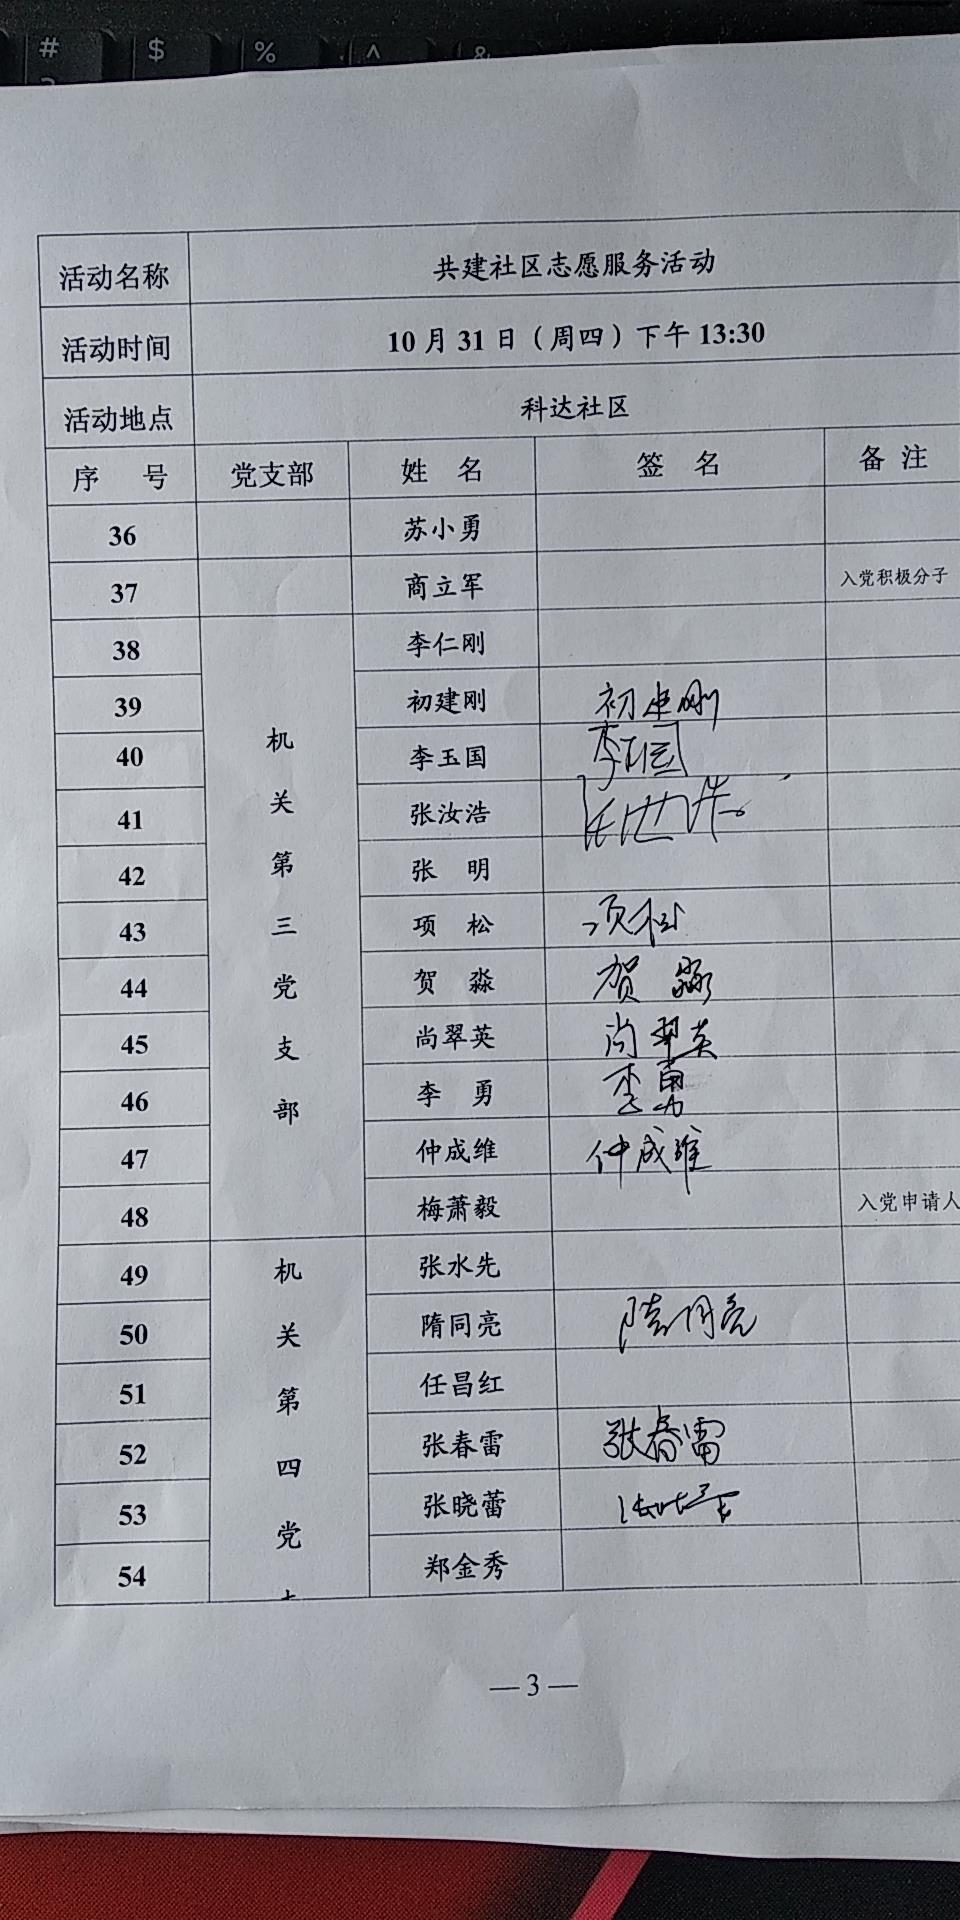 # $ % ^ &
活动名称 共建社区志愿服务活动
活动时间 10月31日（周四）下午13:30
活动地点 科达社区
序 号 党支部 姓 名 签 名 备 注
36 苏小勇
37 商立军 入党积极分子
38 李仁刚
39 初建刚 初建刚
40 李玉国 李玉国
41 张汝浩
42 张 明
43 项 松 项松
44 贺 淼 贺 淼
45 尚翠英 尚翠英
46 李 勇 李勇
47 仲成维 仲成维
48 梅萧毅 入党申请人
机关第三党支部
49 张水先
50 隋同亮 隋同亮
51 任昌红
52 张春雷 张春雷
53 张晓蕾
54 郑金秀
机关第四党
— 3 —